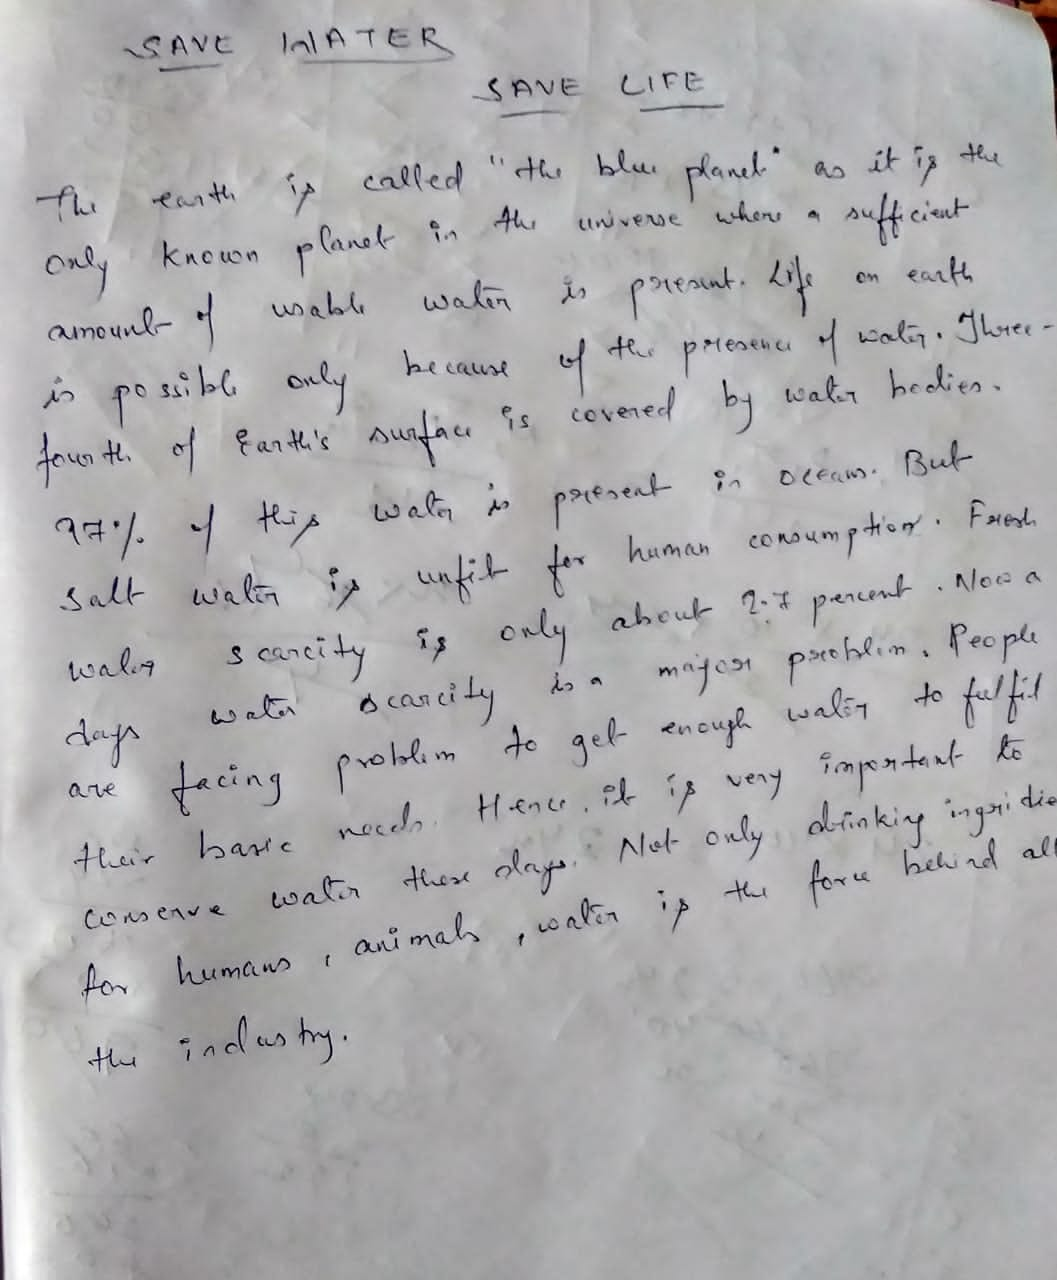 SAVE WATER
SAVE LIFE
The earth is called "the blue planet" as it is the
only known planet in the universe where a sufficient
amount of usable water is present. Life on earth
is possible only because of the presence of water. Three-
fourth of Earth's surface is covered by water bodies.
97% of this water is present in oceans. But
salt water is unfit for human consumption. Fresh
water scarcity is only about 2.7 percent. Now a
days water scarcity is a major problem. People
are facing problem to get enough water to fulfil
their basic needs. Hence, it is very important to
conserve water these days. Not only drinking ingridie
for humans, animals, water is the force behind all
the industry.